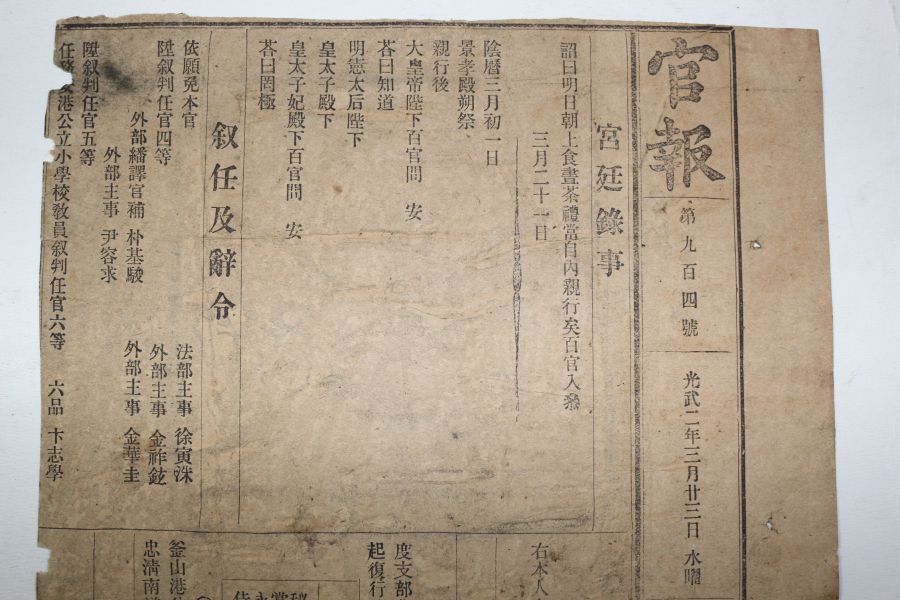 官報
第九百四號
光武二年三月廿三日 水曜
宮廷錄事
詔曰明日朝上食晝茶禮當自內親行矣百官入參
三月二十一日
陰曆三月初一日
景孝殿朔祭
親行後
大皇帝陛下百官問 安
荅曰知道
明憲太后陛下
皇太子殿下
皇太子妃殿下百官問 安
荅曰罔極
叙任及辭令
依願免本官 法部主事 徐寅洙
陞叙判任官四等 外部主事 金祚鉉
外部繙譯官補 朴基駿 外部主事 金華圭
外部主事 尹容求
陞叙判任官五等
港公立小學校敎員叙判任官六等 六品 卞志學
右本人
度支部
起復行
釜山港
忠淸南